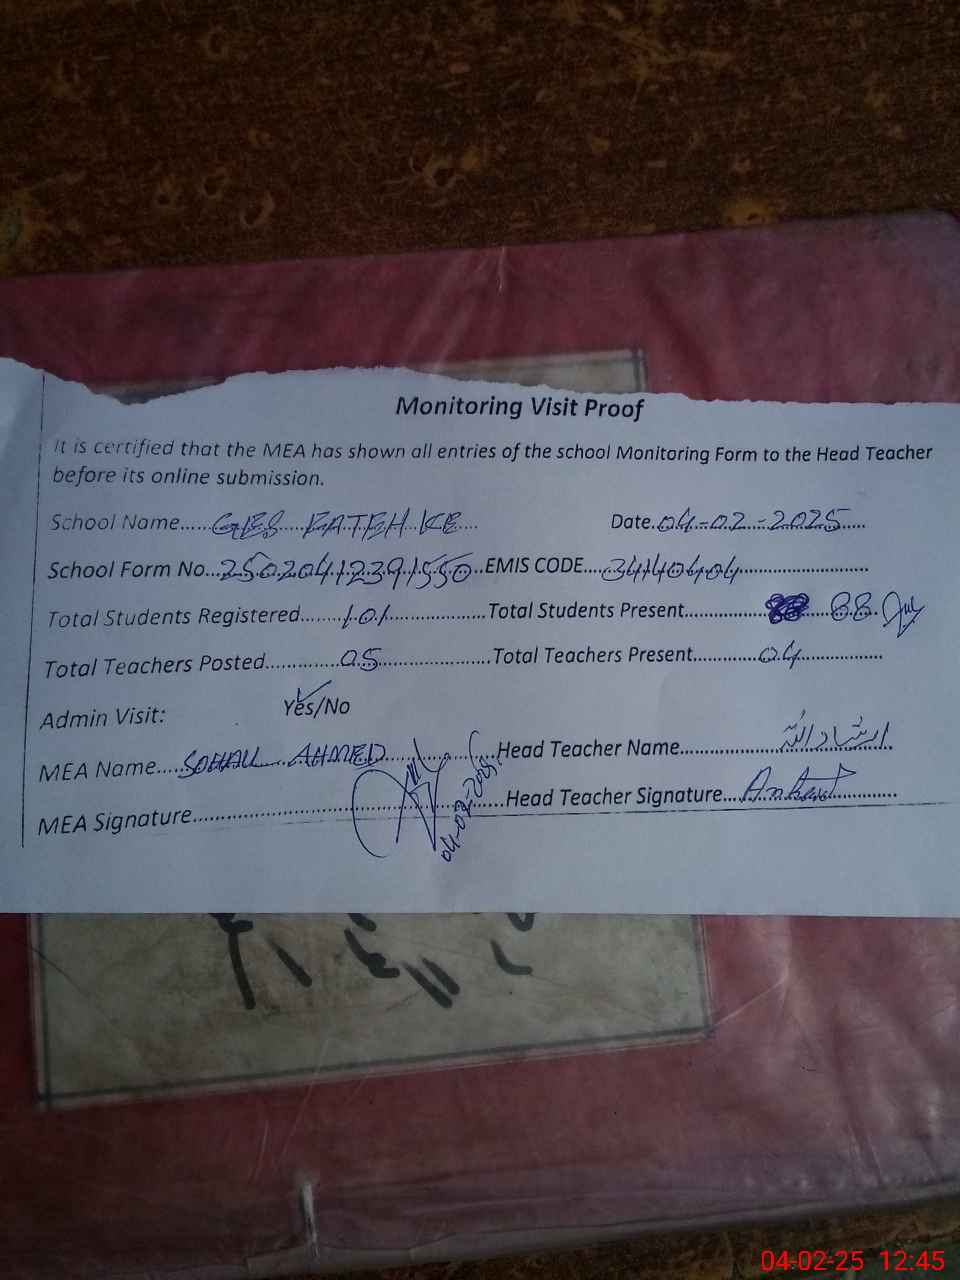 Monitoring Visit Proof
It is certified that the MEA has shown all entries of the school Monitoring Form to the Head Teacher
before its online submission.
School Name......GES FATEH KE.... Date.04-02-2025.....
School Form No...25020412391550..EMIS CODE....34140404...................
Total Students Registered........101...............Total Students Present............... 88.
Total Teachers Posted.............05..................Total Teachers Present............04...............
Admin Visit: Yes/No
MEA Name.....SOHAIL AHMED..................Head Teacher Name................ارشاد اللہ
MEA Signature.................................................Head Teacher Signature...
04-02-2025
04-02-25 12:45